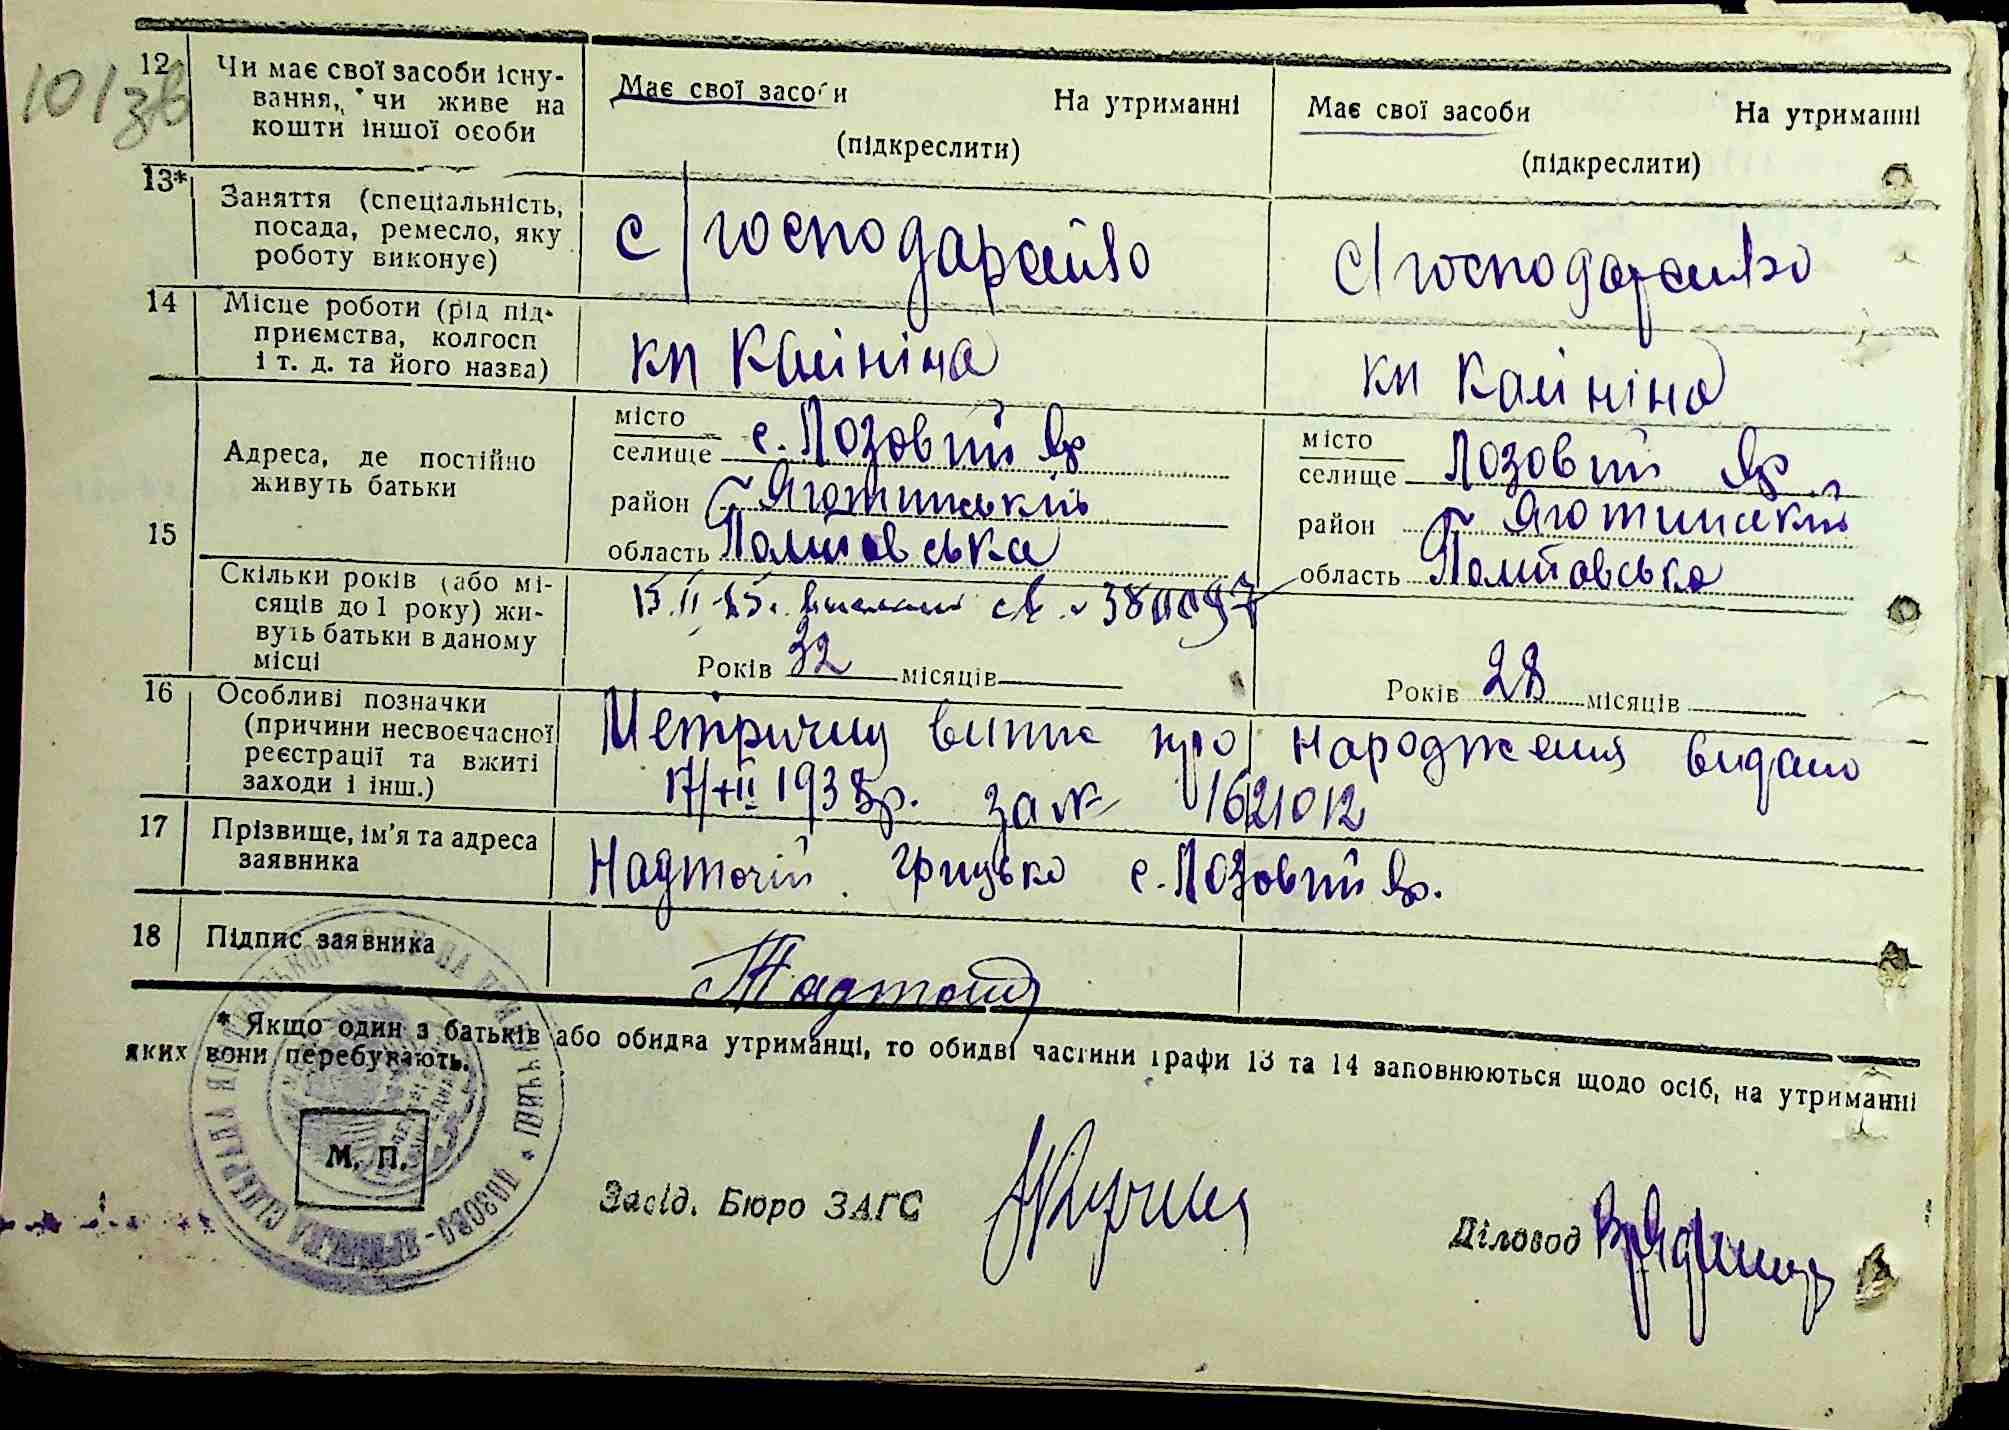 101зв
12 Чи має свої засоби існу-
вання, чи живе на
кошти іншої особи
Має свої засоби На утриманні
(підкреслити)
Має свої засоби На утриманні
(підкреслити)
13* Заняття (спеціальність,
посада, ремесло, яку
роботу виконує)
с/господарство
с/господарство
14 Місце роботи (рід під-
приємства, колгосп
і т. д. та його назва)
кп Калініна
кп Калініна
15
Адреса, де постійно
живуть батьки
місто
селище с. Лозовий Яр
район Яготинський
область Полтавська
місто
селище Лозовий Яр
район Яготинський
область Полтавська
Скільки років (або мі-
сяців до 1 року) жи-
вуть батьки в даному
місці
Років 32 місяців
Років 28 місяців
16 Особливі позначки
(причини несвоєчасної
реєстрації та вжиті
заходи і інш.)
Метричну випис про народження видано
17/XII 1938р. за № 1621012
17 Прізвище, ім'я та адреса
заявника
Надточій Грицько с. Лозовий Яр.
18 Підпис заявника
* Якщо один з батьків або обидва утриманці, то обидві частини графи 13 та 14 заповнюються щодо осіб, на утриманні
яких вони перебувають.
М. П.
Завід. Бюро ЗАГС
Діловод